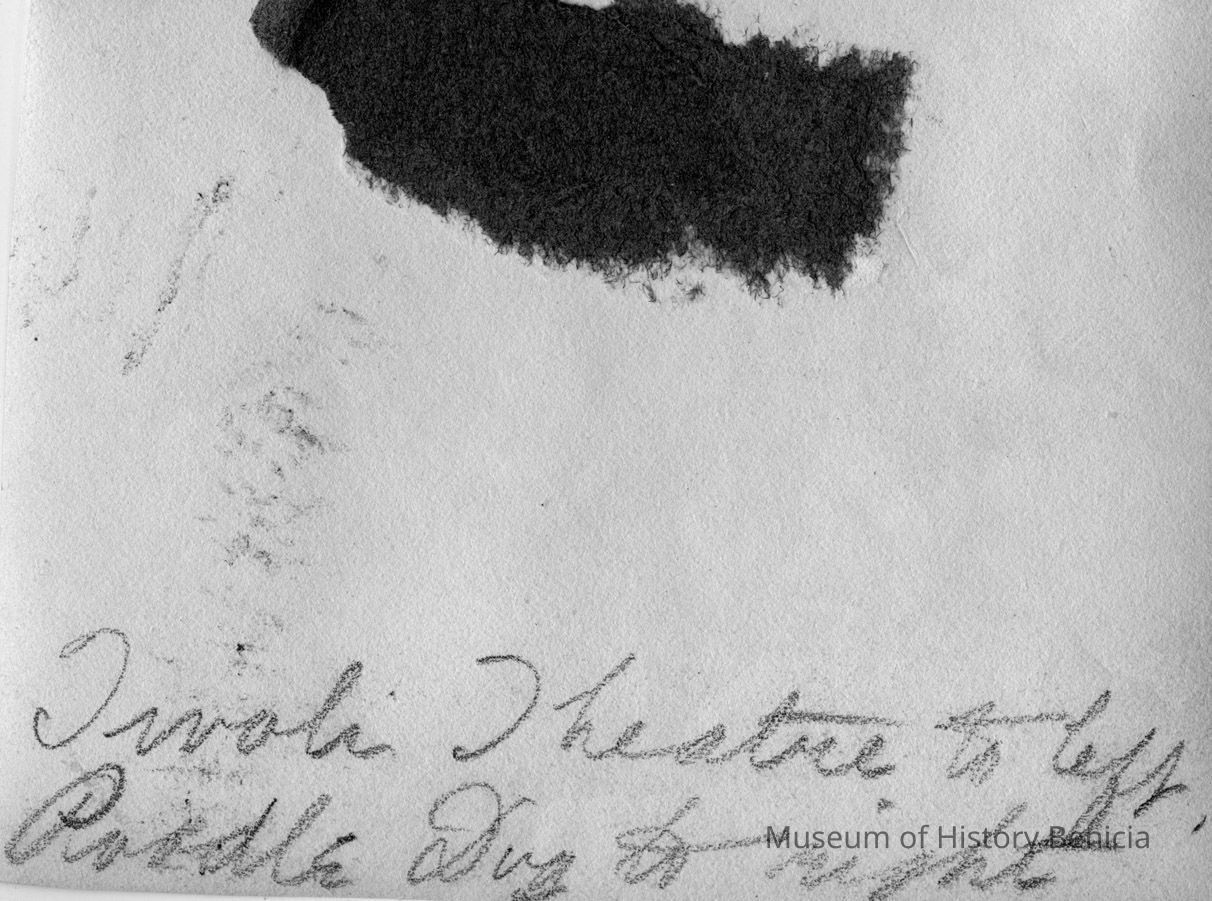 Tivoli Theatre to left,
Poodle Dog to right
Museum of History Benicia